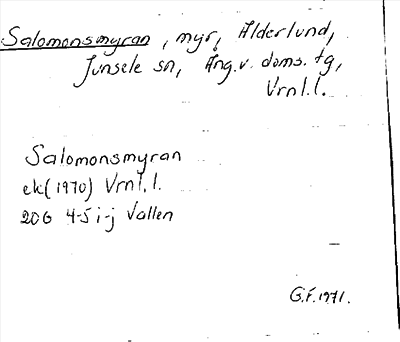 Salomonsmyran, myr, Ålderlund,
Junsele sn, Ång.v. doms. tg,
Vrnl.l.
Salomonsmyran
ek (1970) Vrnl.l.
20G 4-5 i-j Vallen
G.F. 1971.